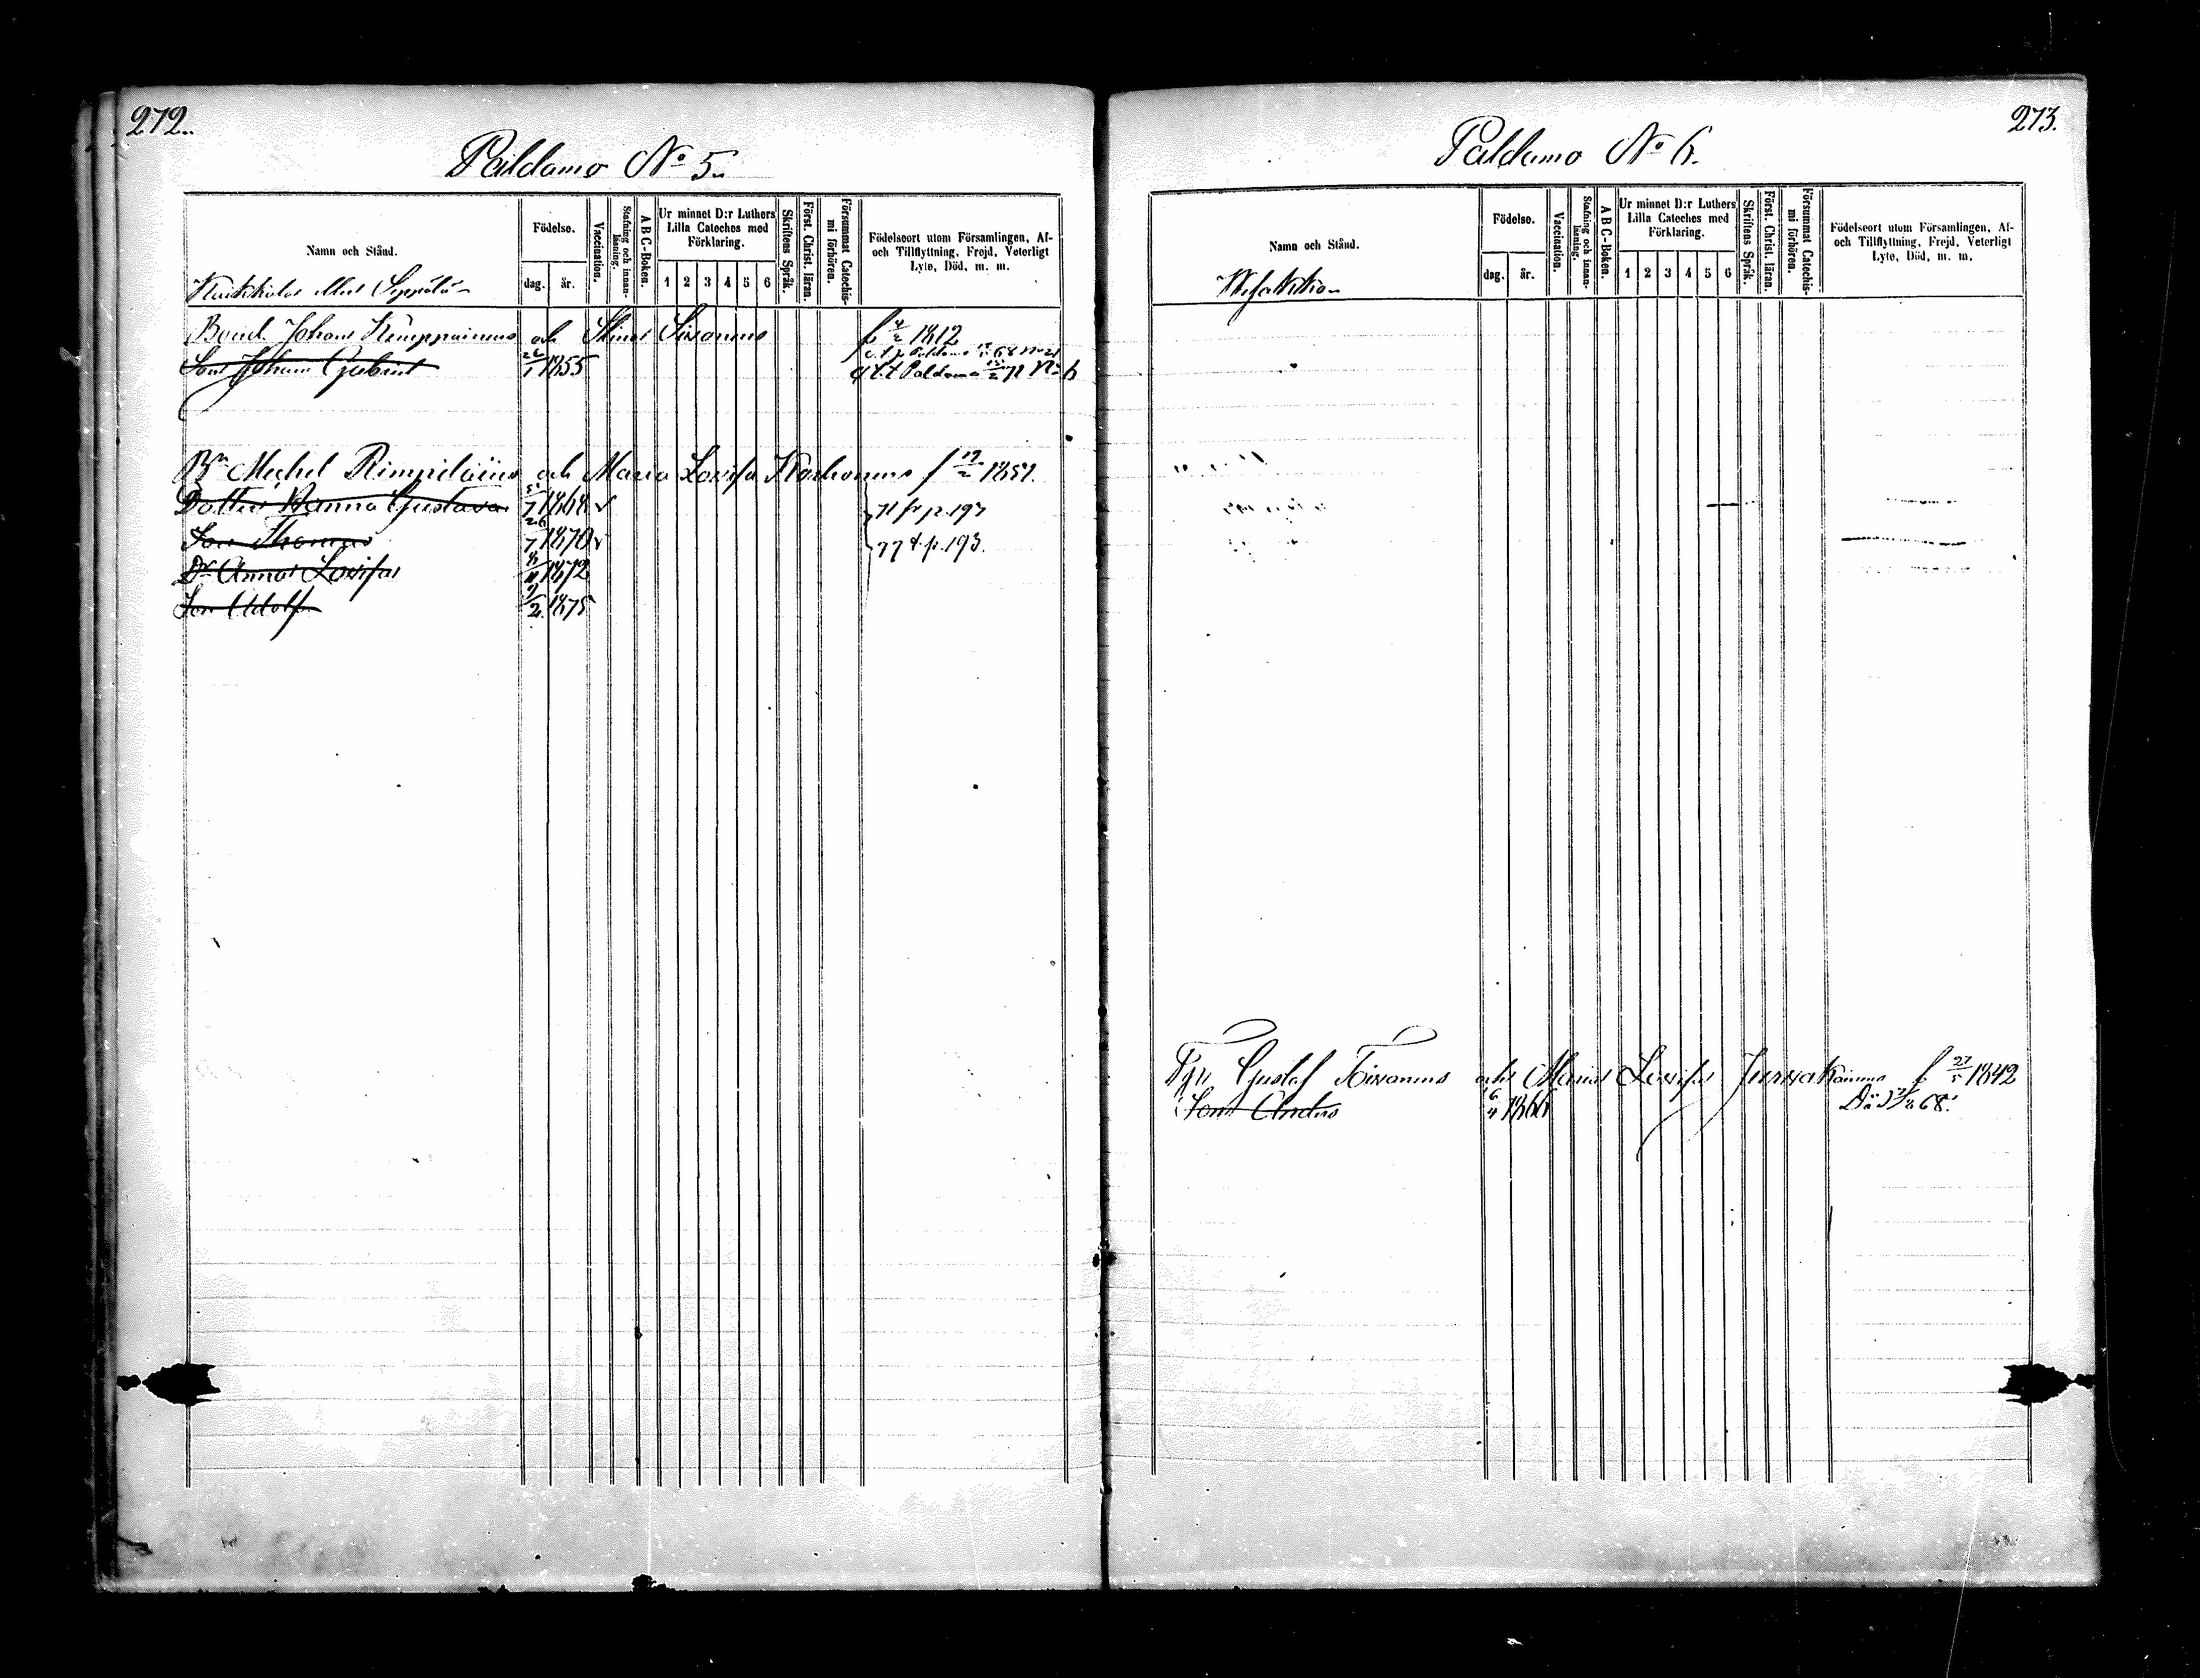 272.
Paldamo No 5.
Namn och Stånd.
Födelse.
dag. år.
Vaccination.
Stafning och innan-läsning.
A B C-Boken.
Ur minnet D:r Luthers
Lilla Cateches med
Förklaring.
1 2 3 4 5 6
Skriftens Språk.
Först. Christ. läran.
Försummat Catechis-mi förhören.
Födelseort utom Församlingen, Af-
och Tillflyttning, Frejd, Veterligt
Lyte, Död, m. m.
Seppälä
Bond. Johan Kemppainens och Stina Sirvonens f 1812
Son Johan Gabriel 26/1 1855 Paldamo 68
Paldamo 15/2 71 No 6
Bn Michel Rimpiläinens och Maria Lovisa Karhonens f 12/2 1851.
Dotter Hanna Gustava 5/7 1868 v 71 fr p. 197
Son Thomas 26/7 1870 v 77 t. p. 193.
Dr Anna Lovisa 8/11 1872
Son Adolf 9/2 1875
273.
Paldamo No 6.
Namn och Stånd.
Födelse.
dag. år.
Vaccination.
Stafning och innan-läsning.
A B C-Boken.
Ur minnet D:r Luthers
Lilla Cateches med
Förklaring.
1 2 3 4 5 6
Skriftens Språk.
Först. Christ. läran.
Försummat Catechis-mi förhören.
Födelseort utom Församlingen, Af-
och Tillflyttning, Frejd, Veterligt
Lyte, Död, m. m.
Gustaf och Maria Lovisa f 27/5 1842
Son Anders 6/4 1866 Död 68.